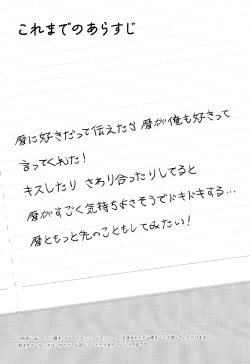 これまでのあらすじ
暦に好きだって伝えたら暦が俺も好きって
言ってくれた!
キスしたり さわり合ったりしてると
暦がすごく気持ちよさそうでドキドキする…
暦ともっと先のこともしてみたい!